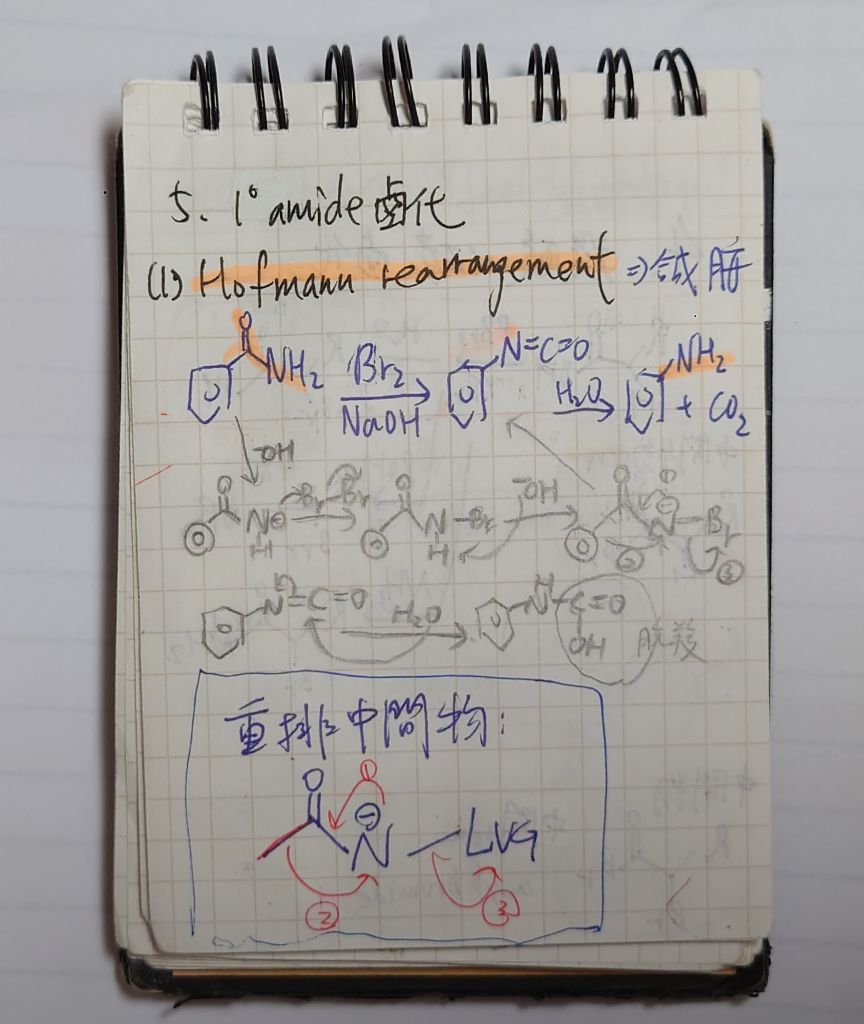 5. 1° amide 鹵代
(1) Hofmann rearrangement ⇒ 合成胺
O NH2 Br2 NaOH N=C=O H2O NH2 + CO2
⁻OH
O N⊖ H Br Br O N-Br H ⁻OH O N⊖-Br ① ② ③
N=C=O H2O H N C=O OH 脫羧
重排中間物:
O ① ⊖ N LVG
② ③